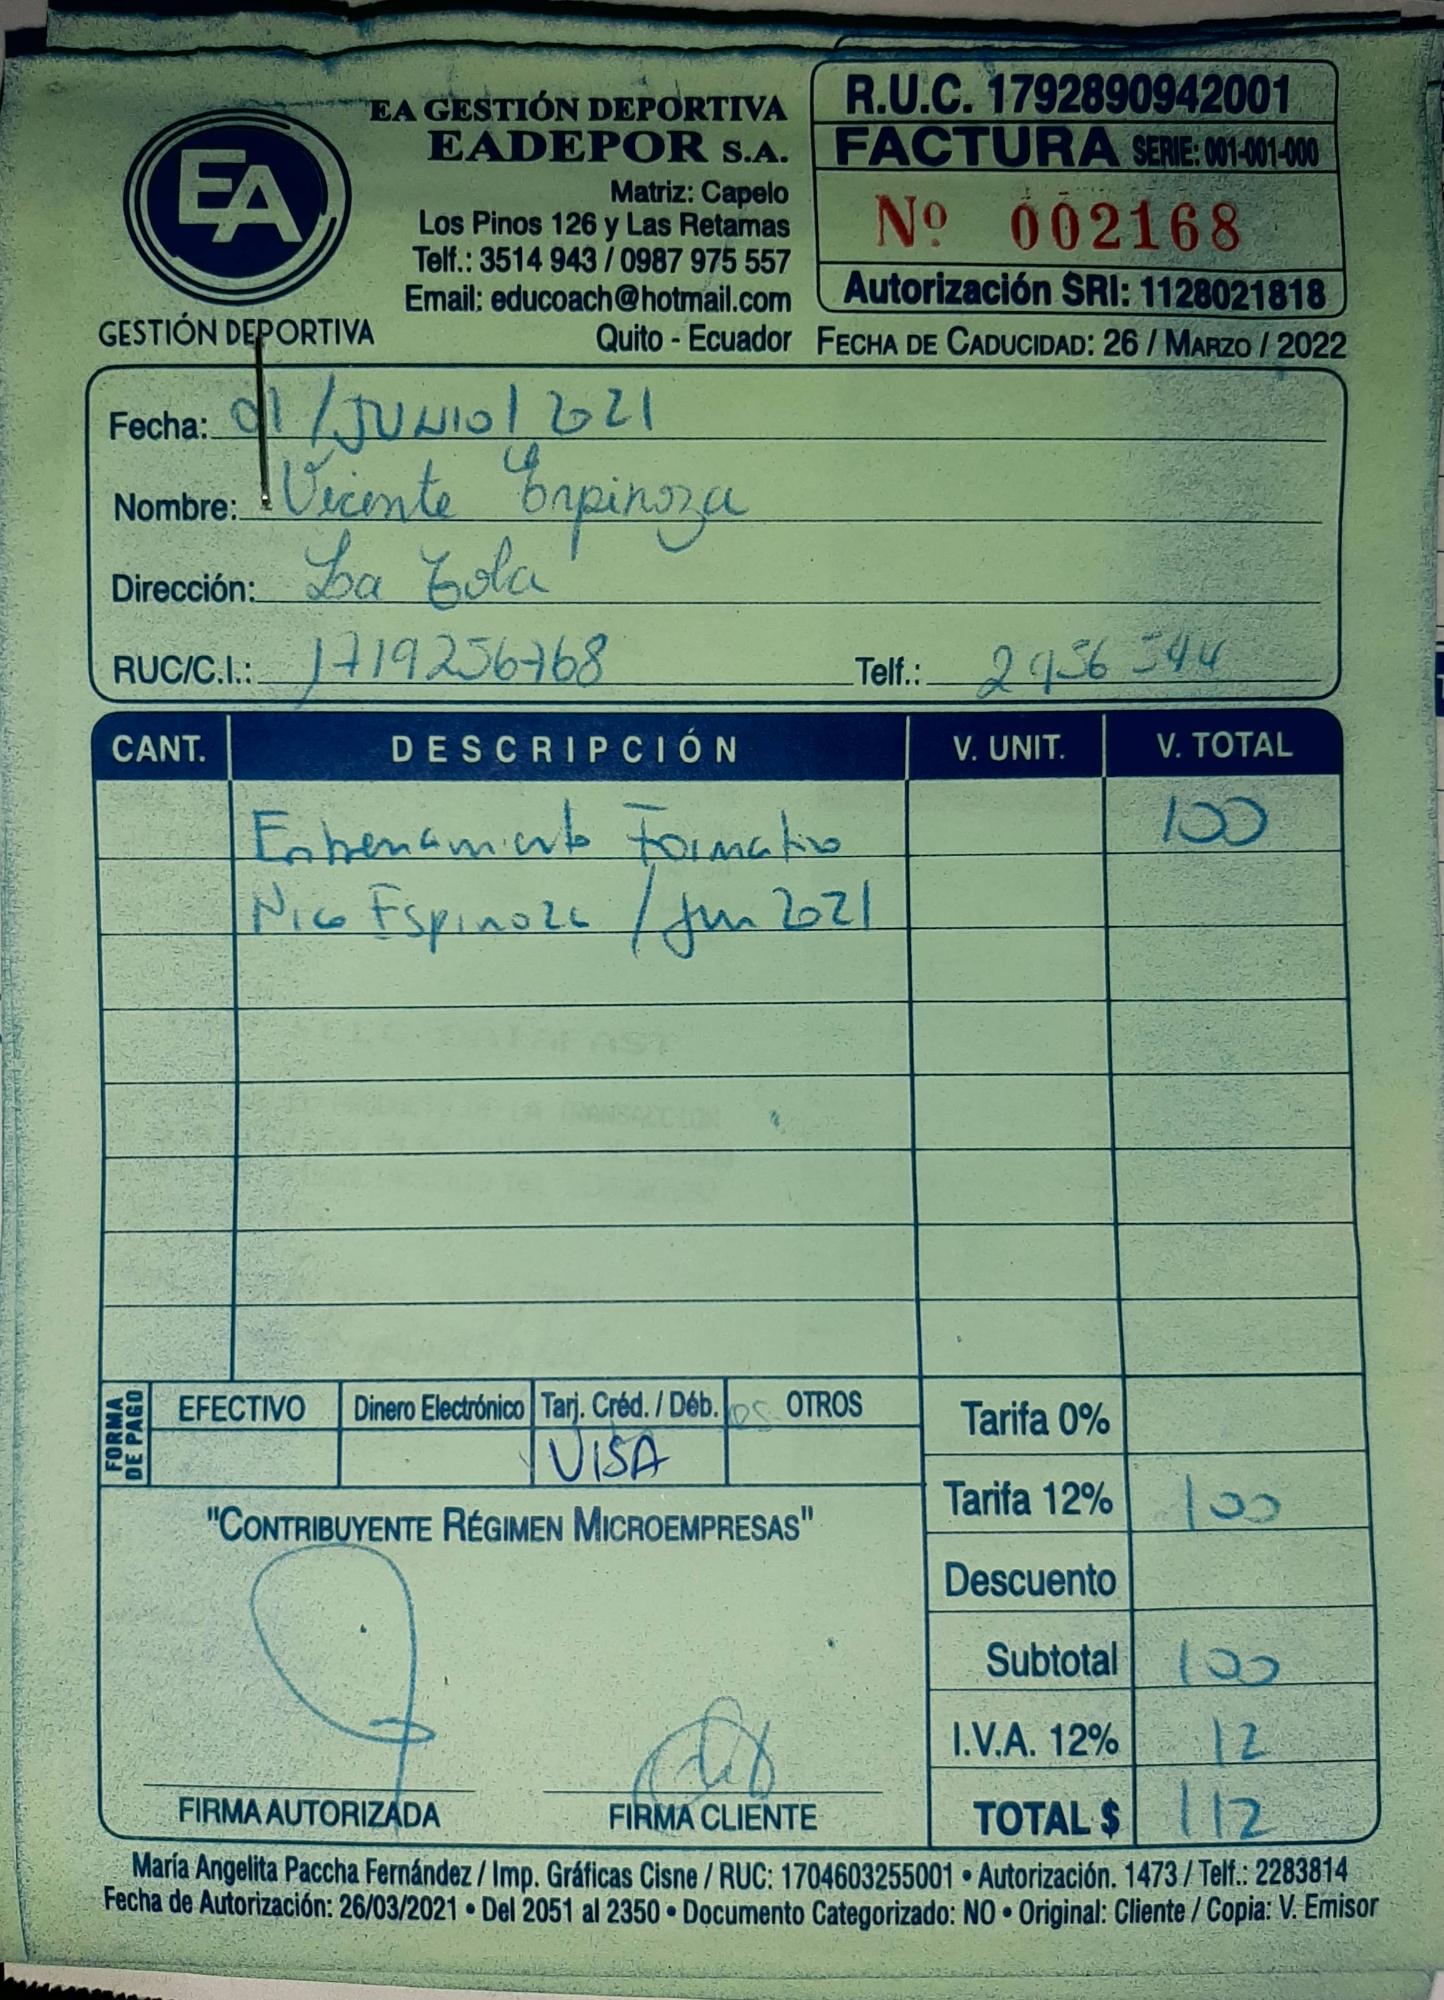 EA GESTIÓN DEPORTIVA
EADEPOR S.A.
Matriz: Capelo
Los Pinos 126 y Las Retamas
Telf.: 3514 943 / 0987 975 557
Email: educoach@hotmail.com
Quito - Ecuador
EA
GESTIÓN DEPORTIVA
R.U.C. 1792890942001
FACTURA SERIE: 001-001-000
Nº 002168
Autorización SRI: 1128021818
FECHA DE CADUCIDAD: 26 / MARZO / 2022
Fecha: 01/JUNIO/2021
Nombre: Vicente Espinoza
Dirección: La Tola
RUC/C.I.: 1719256768 Telf.: 2956544
CANT. DESCRIPCIÓN V. UNIT. V. TOTAL
Entrenamiento Formativo 100
Nico Espinoza / Jun 2021
FORMA DE PAGO
EFECTIVO Dinero Electrónico Tarj. Créd. / Déb. OTROS
VISA
Tarifa 0%
Tarifa 12% 100
Descuento
Subtotal 100
I.V.A. 12% 12
TOTAL $ 112
"CONTRIBUYENTE RÉGIMEN MICROEMPRESAS"
FIRMA AUTORIZADA FIRMA CLIENTE
María Angelita Paccha Fernández / Imp. Gráficas Cisne / RUC: 1704603255001 • Autorización. 1473 / Telf.: 2283814
Fecha de Autorización: 26/03/2021 • Del 2051 al 2350 • Documento Categorizado: NO • Original: Cliente / Copia: V. Emisor